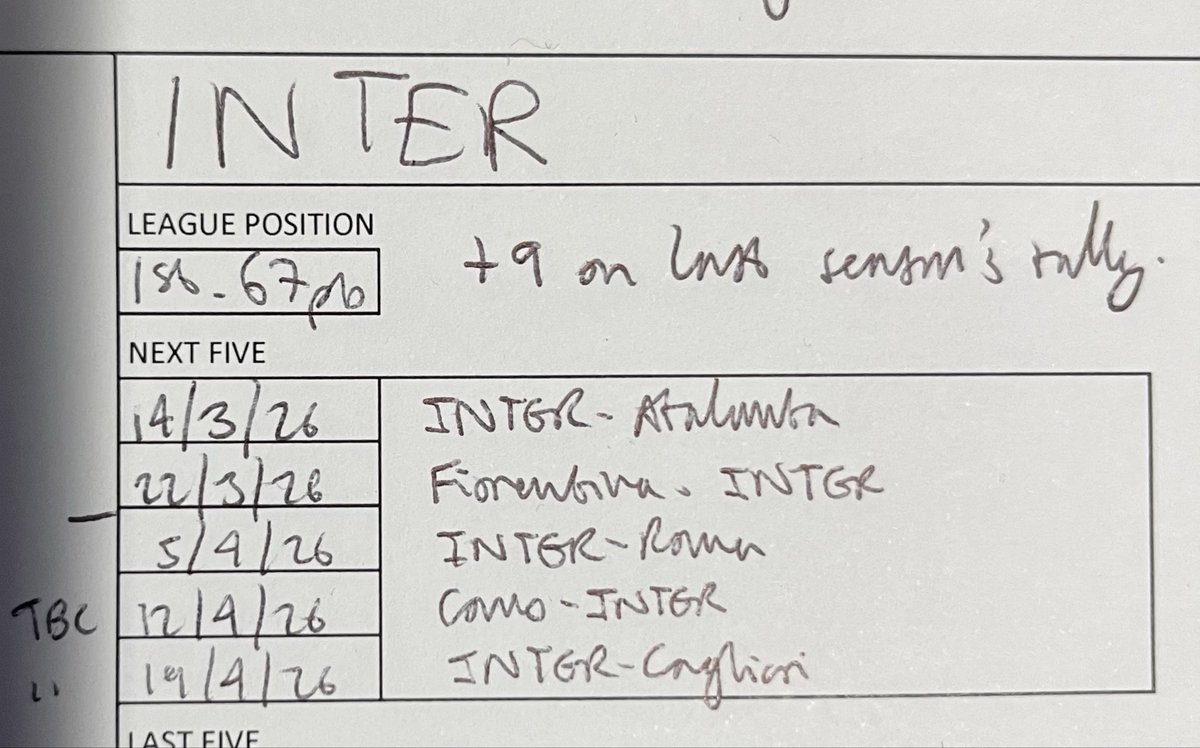 INTER
LEAGUE POSITION
1st - 67pts
+9 on last season's tally.
NEXT FIVE
14/3/26 INTER - Atalanta
22/3/26 Fiorentina - INTER
5/4/26 INTER - Roma
TBC 12/4/26 Como - INTER
" 19/4/26 INTER - Cagliari
LAST FIVE